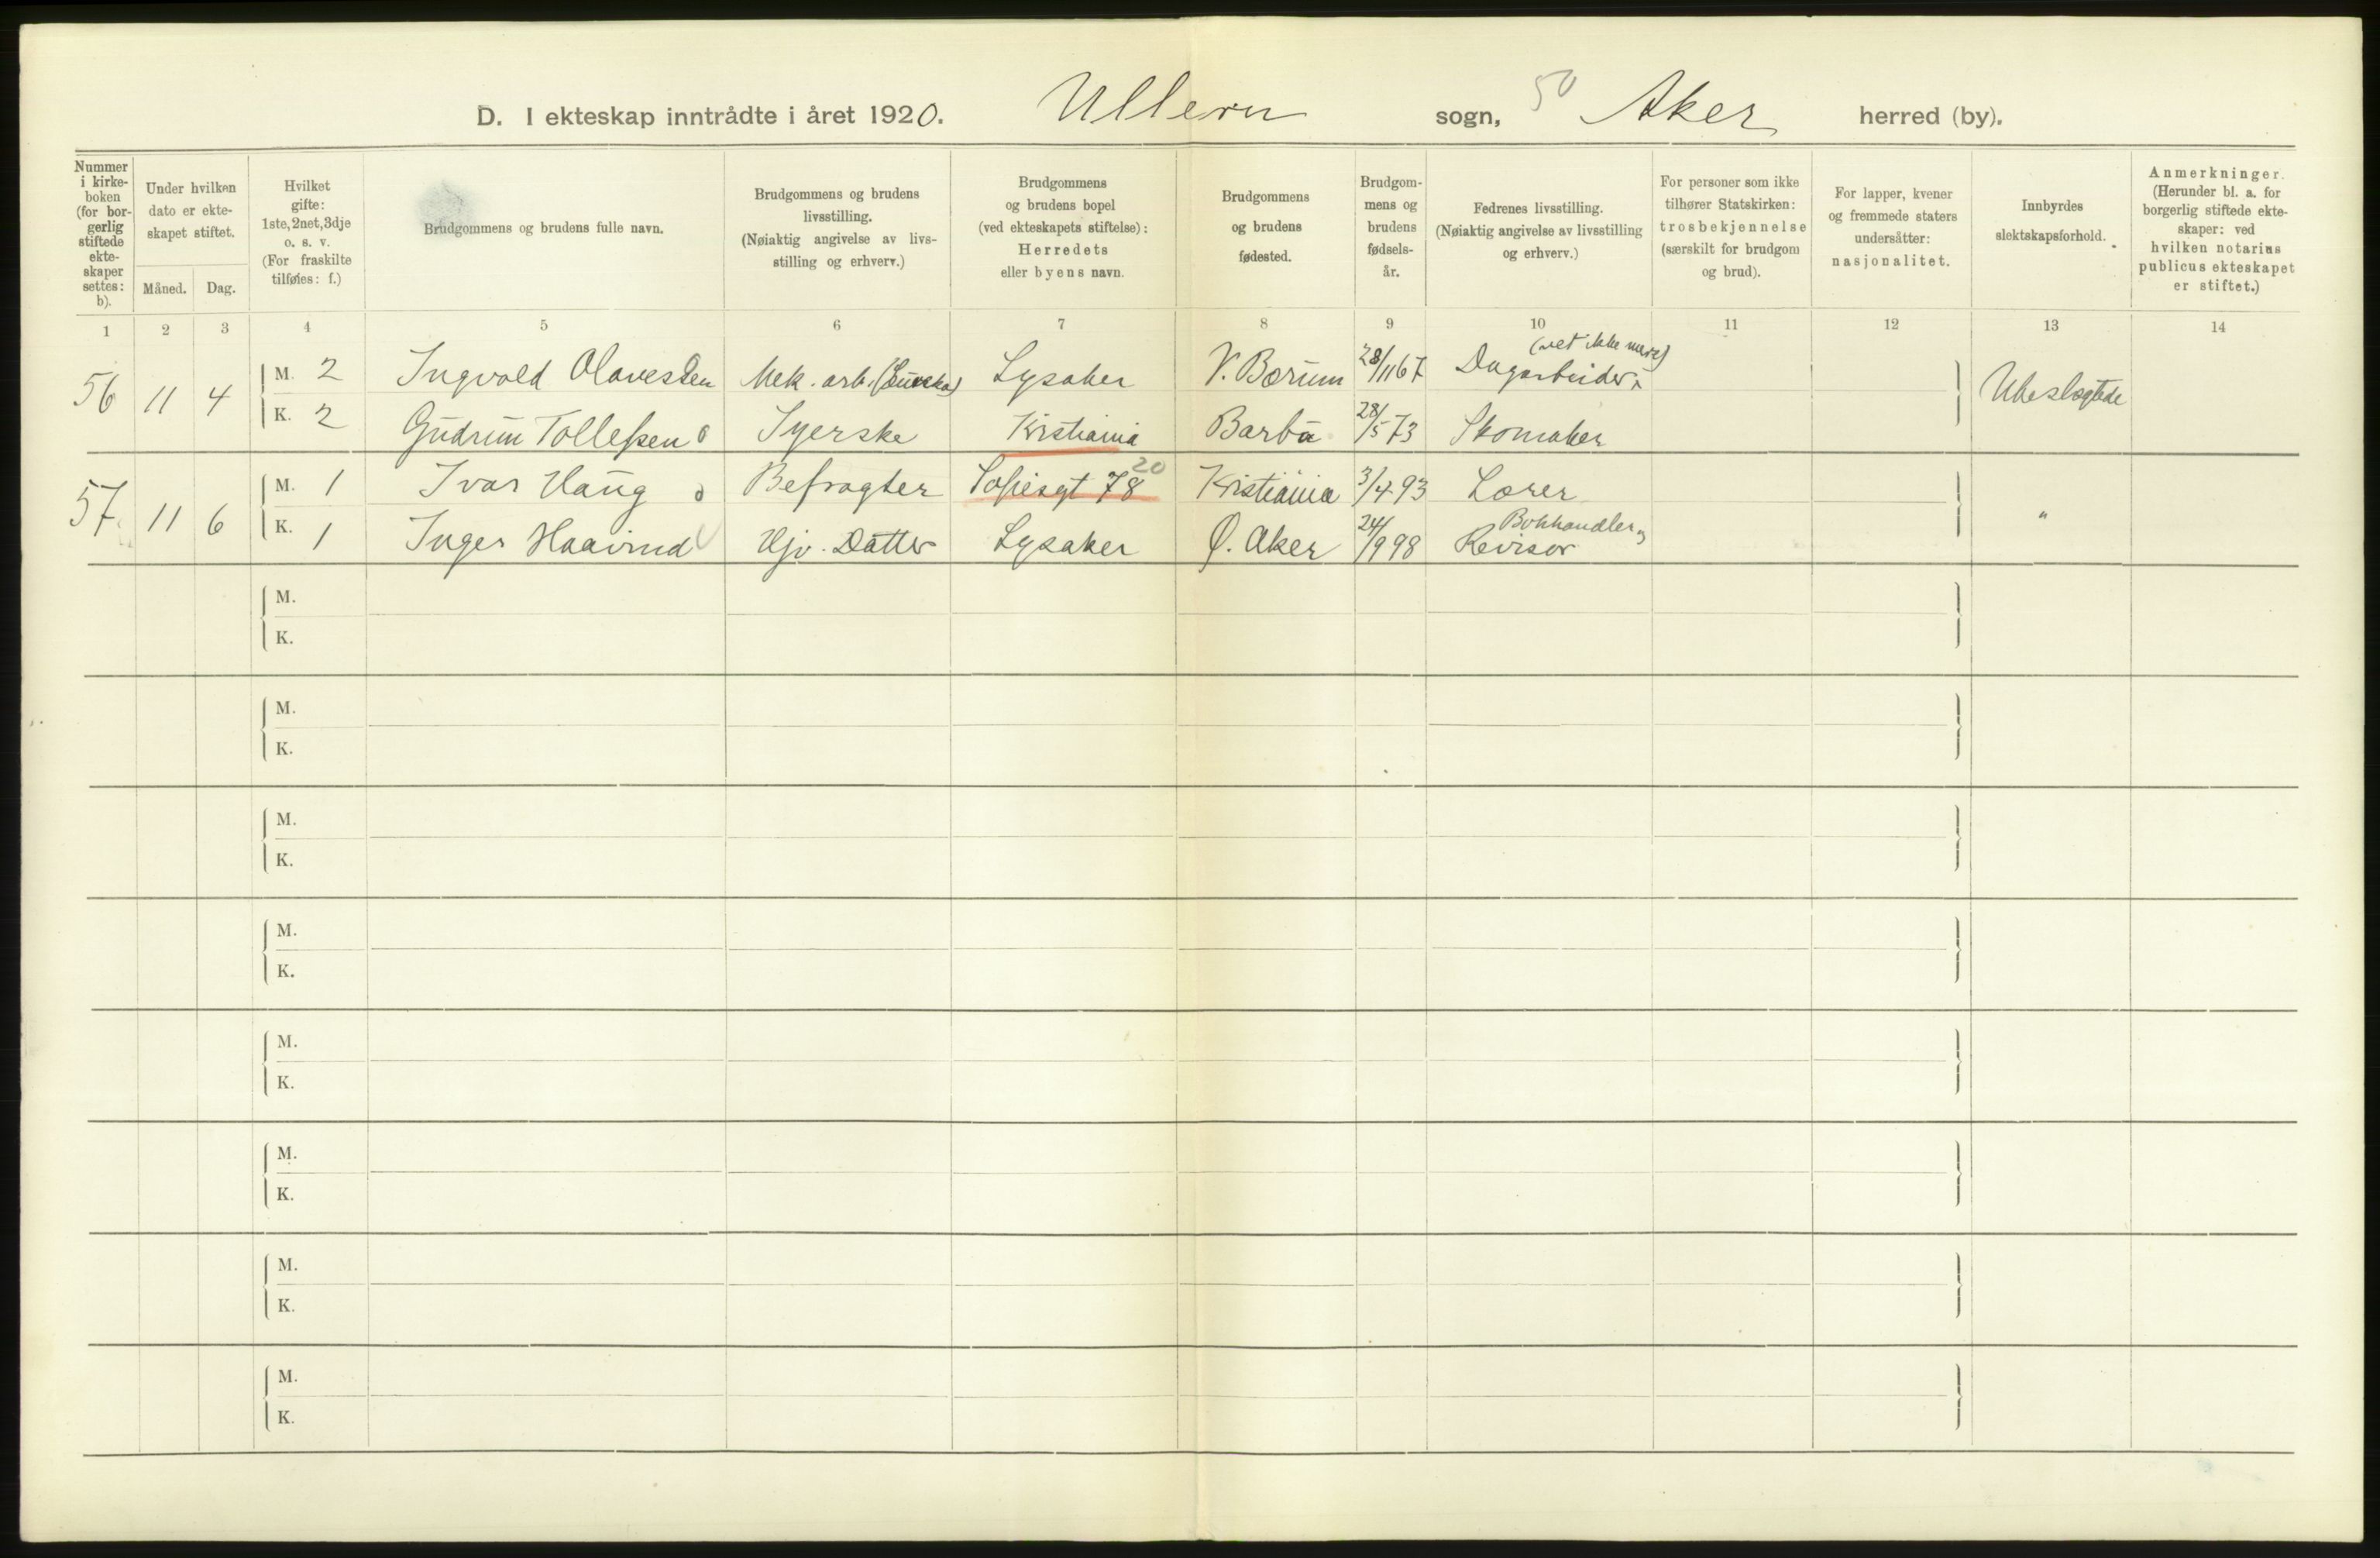 D. I ekteskap inntrådte i året 1920. Ullern sogn, 50 Aker herred (by).
Nummer
i kirke-
boken
(for bor-
gerlig
stiftede
ekte-
skaper
settes:
b).
Under hvilken
dato er ekte-
skapet stiftet.
Måned. Dag.
Hvilket
gifte:
1ste, 2net, 3dje
o. s. v.
(For fraskilte
tilføies: f.)
Brudgommens og brudens fulle navn.
Brudgommens og brudens
livsstilling.
(Nøiaktig angivelse av livs-
stilling og erhverv.)
Brudgommens
og brudens bopel
(ved ekteskapets stiftelse):
Herredets
eller byens navn.
Brudgommens
og brudens
fødested.
Brudgom-
mens og
brudens
fødsels-
år.
Fedrenes livsstilling.
(Nøiaktig angivelse av livsstilling
og erhverv.)
For personer som ikke
tilhører Statskirken:
trosbekjennelse
(særskilt for brudgom
og brud).
For lapper, kvener
og fremmede staters
undersåtter:
nasjonalitet.
Innbyrdes
slektskapsforhold.
Anmerkninger.
(Herunder bl. a. for
borgerlig stiftede ekte-
skaper: ved
hvilken notarius
publicus ekteskapet
er stiftet.)
1 2 3 4 5 6 7 8 9 10 11 12 13 14
(vet ikke mere)
56 11 4 M. 2 Ingvald Olavesen Mek. arb. Lysaker V. Bærum 28/11 67 Dagarbeider Ubeslegtede
K. 2 Gudrun Tollefsen Syerske Kristiania Barbu 28/5 73 Skomaker
20
57. 11 6 M. 1 Ivar Haug Befragter Sofiesgt 78 Kristiania 3/4 93 Lærer "
Bokhandler og
K. 1 Inger Haavind Hjv. Datter Lysaker Ø. Aker 24/9 98 Revisor
M.
K.
M.
K.
M.
K.
M.
K.
M.
K.
M.
K.
M.
K.
M.
K.